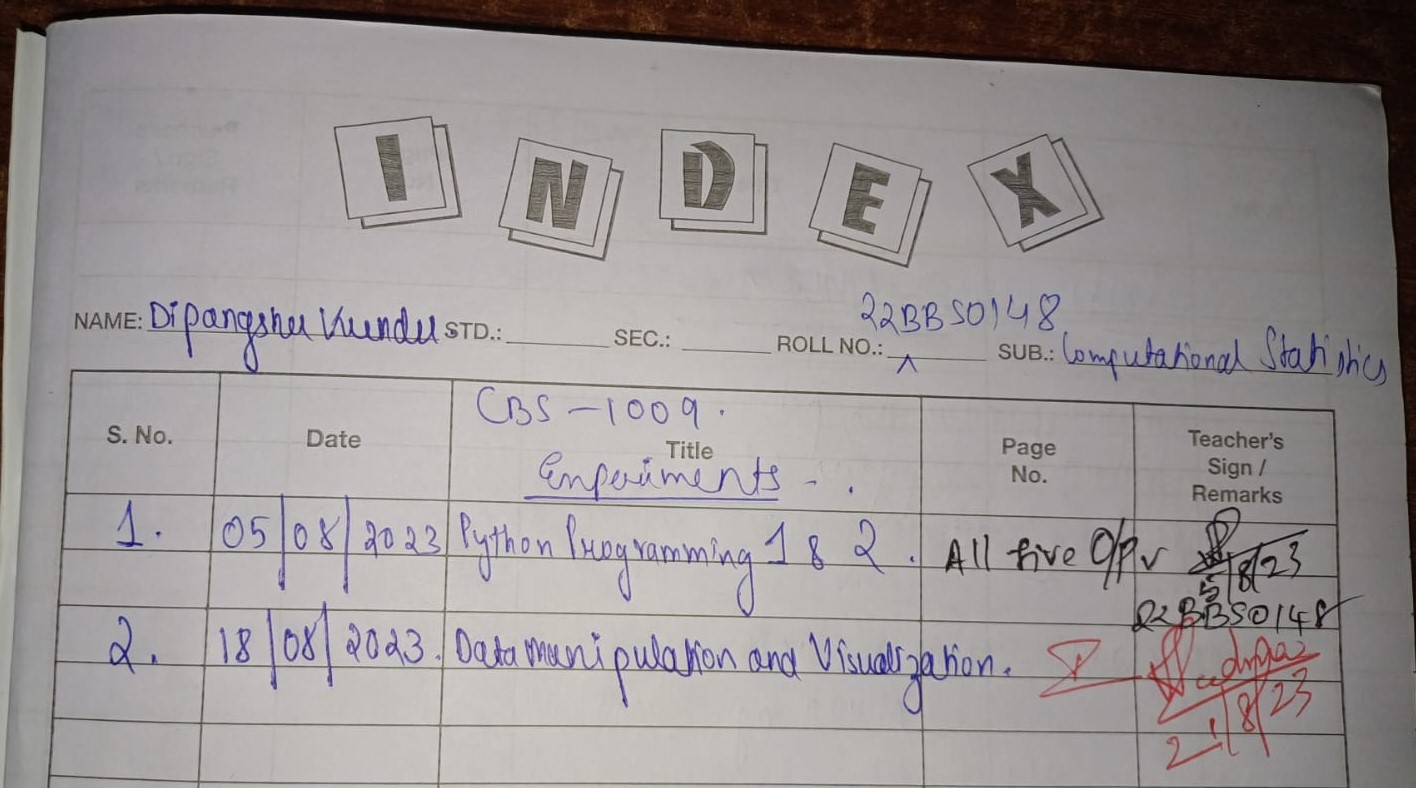 INDEX
NAME: Dipangshu Kundu STD.: SEC.: ROLL NO.: 22BBS0148 SUB.: Computational Statistics
CBS-1009.
S. No. Date Title Page No. Teacher's Sign / Remarks
Experiments - .
1. 05/08/2023 Python Programming 1 & 2. All five O/P 5/8/23
22BBS0148
2. 18/08/2023. Data Munipulation and Visualization.
21/8/23